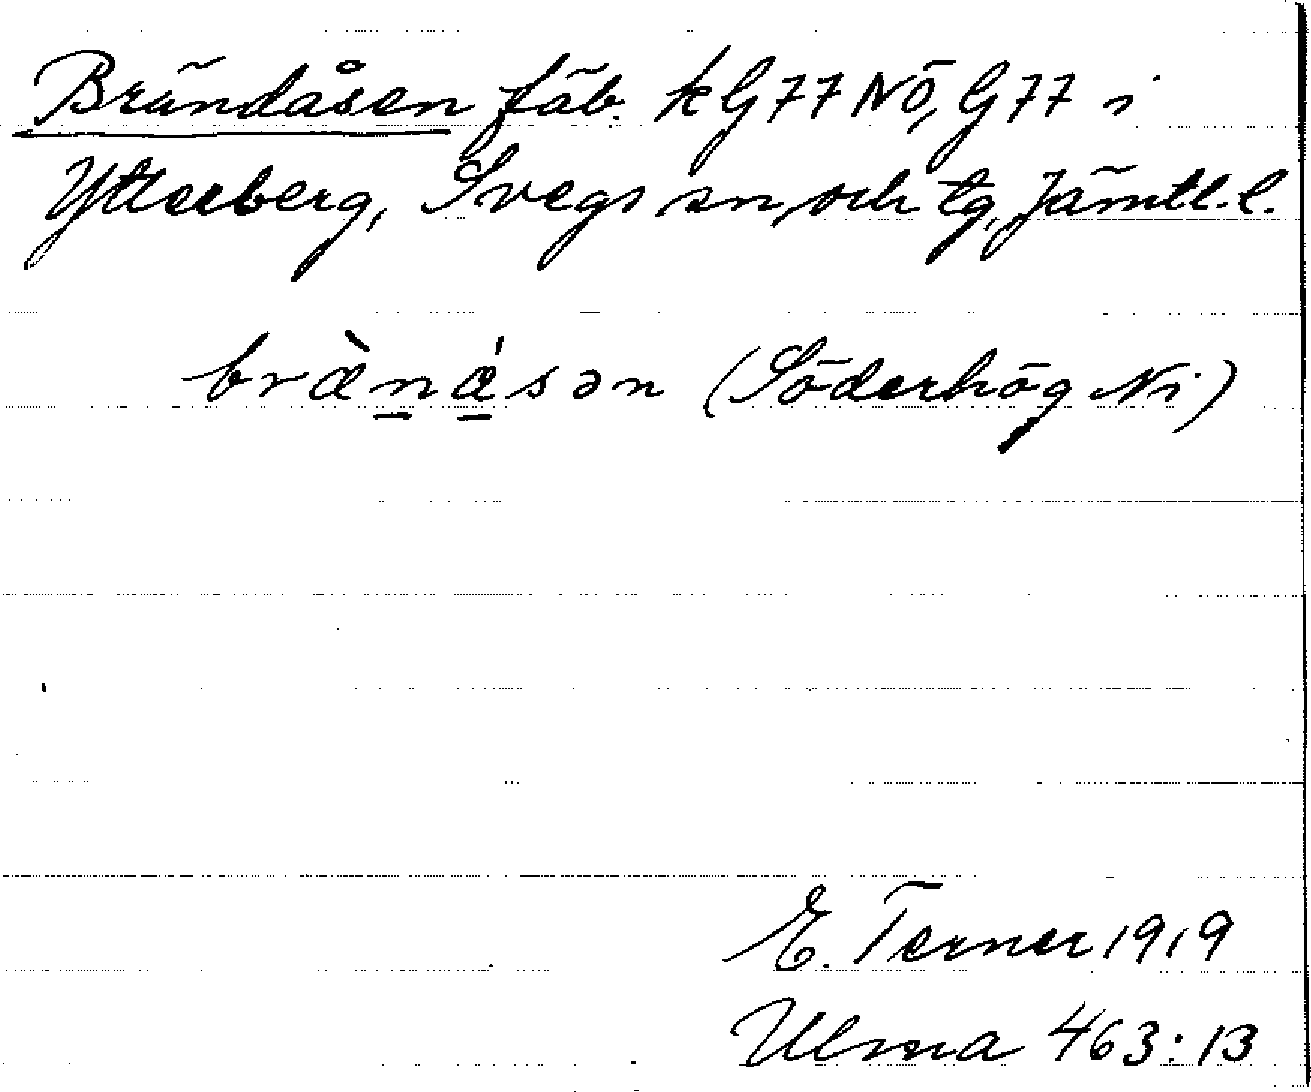 Brändåsen fäb. k G77 NÖ, G77 i
Ytterberg, Svegs sn och tg, Jämtl. l.
bræ̀n̠ǽ̠sən (Söderhög Ni)
E. Terner 1919
Ulma 463:13